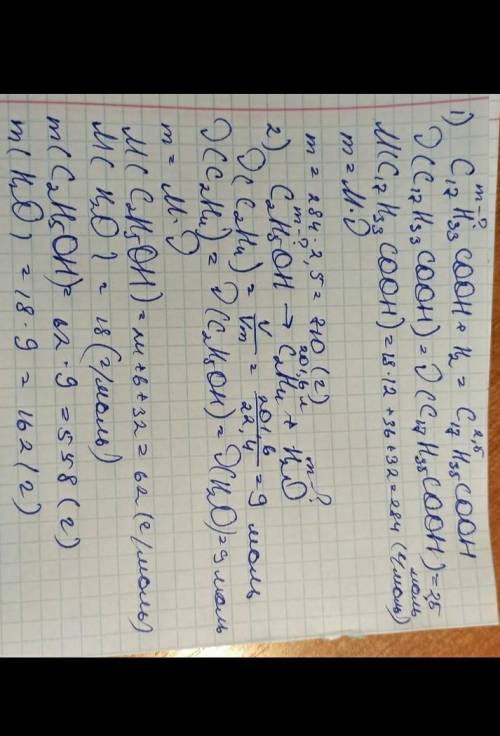 m-?
1) C₁₇H₃₃COOH + H₂ = C₁₇H₃₅COOH
2,5
ν(C₁₇H₃₃COOH) = ν(C₁₇H₃₅COOH) = 2,5 моль
M(C₁₇H₃₃COOH) = 18·12+36+32=284 (г/моль)
m=M·ν
m = 284·2,5 = 710 (г)
m-? 201,6 л m-?
2) C₂H₅OH → C₂H₄ + H₂O
ν(C₂H₄) = V/Vm = 201,6/22,4 = 9 моль
ν(C₂H₄) = ν(C₂H₅OH) = ν(H₂O) = 9 моль
m = M·ν
M(C₂H₅OH) = 24+6+32 = 62 (г/моль)
M(H₂O) = 18 (г/моль)
m(C₂H₅OH) = 62·9 = 558 (г)
m(H₂O) = 18·9 = 162 (г)